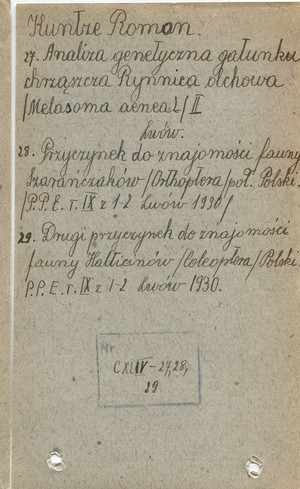 Kuntze Roman.
27. Analiza genetyczna gatunku
chrząszcza Rynnica olchowa
/Melasoma aenea L/ II
Lwów.
28. Przyczynek do znajomości fauny
Szarańczaków /Orthoptera/ poł. Polski.
/P.P.E. T. IX z 1-2 Lwów 1930/
29. Drugi przyczynek do znajomości
fauny Halticinów /Coleoptera/ Polski.
P.P.E. T. IX z 1-2 Lwów 1930.
Nr.
CXLIV-27,28,
29